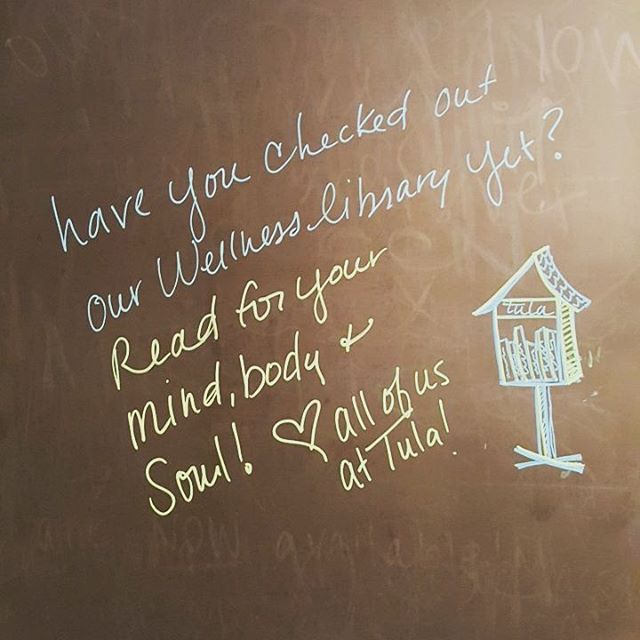 have you checked out
our Wellness library yet?
Read for your
mind, body &
Soul! ♡ all of us
at Tula!
tula
NOW
are NOW available!